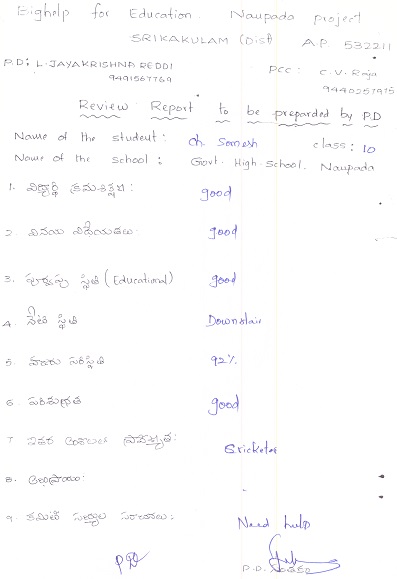 Bighelp for Education. Naupada project
SRIKAKULAM (Dist) A.P 532211
P.D: L. JAYAKRISHNA REDDI PCC: C.V. Raja
9491567769 9440257915
Review Report to be preparded by P.D
Name of the student: Ch. Somesh class: 10
Name of the school: Govt. High School. Naupada
1. విద్యార్థి క్రమశిక్షణ: good
2. వినయ విధేయతలు: good
3. పూర్వపు స్థితి (Educational) good
4. నేటి స్థితి Downstair
5. హాజరు పరిస్థితి 92%
6 పరిశుభ్రత good
7 ఇతర అంశాలలో ప్రావీణ్యత: Cricketer
8. అభిప్రాయం:
9. కమిటీ సభ్యుల సూచనలు: Need help
P.D. సంతకం